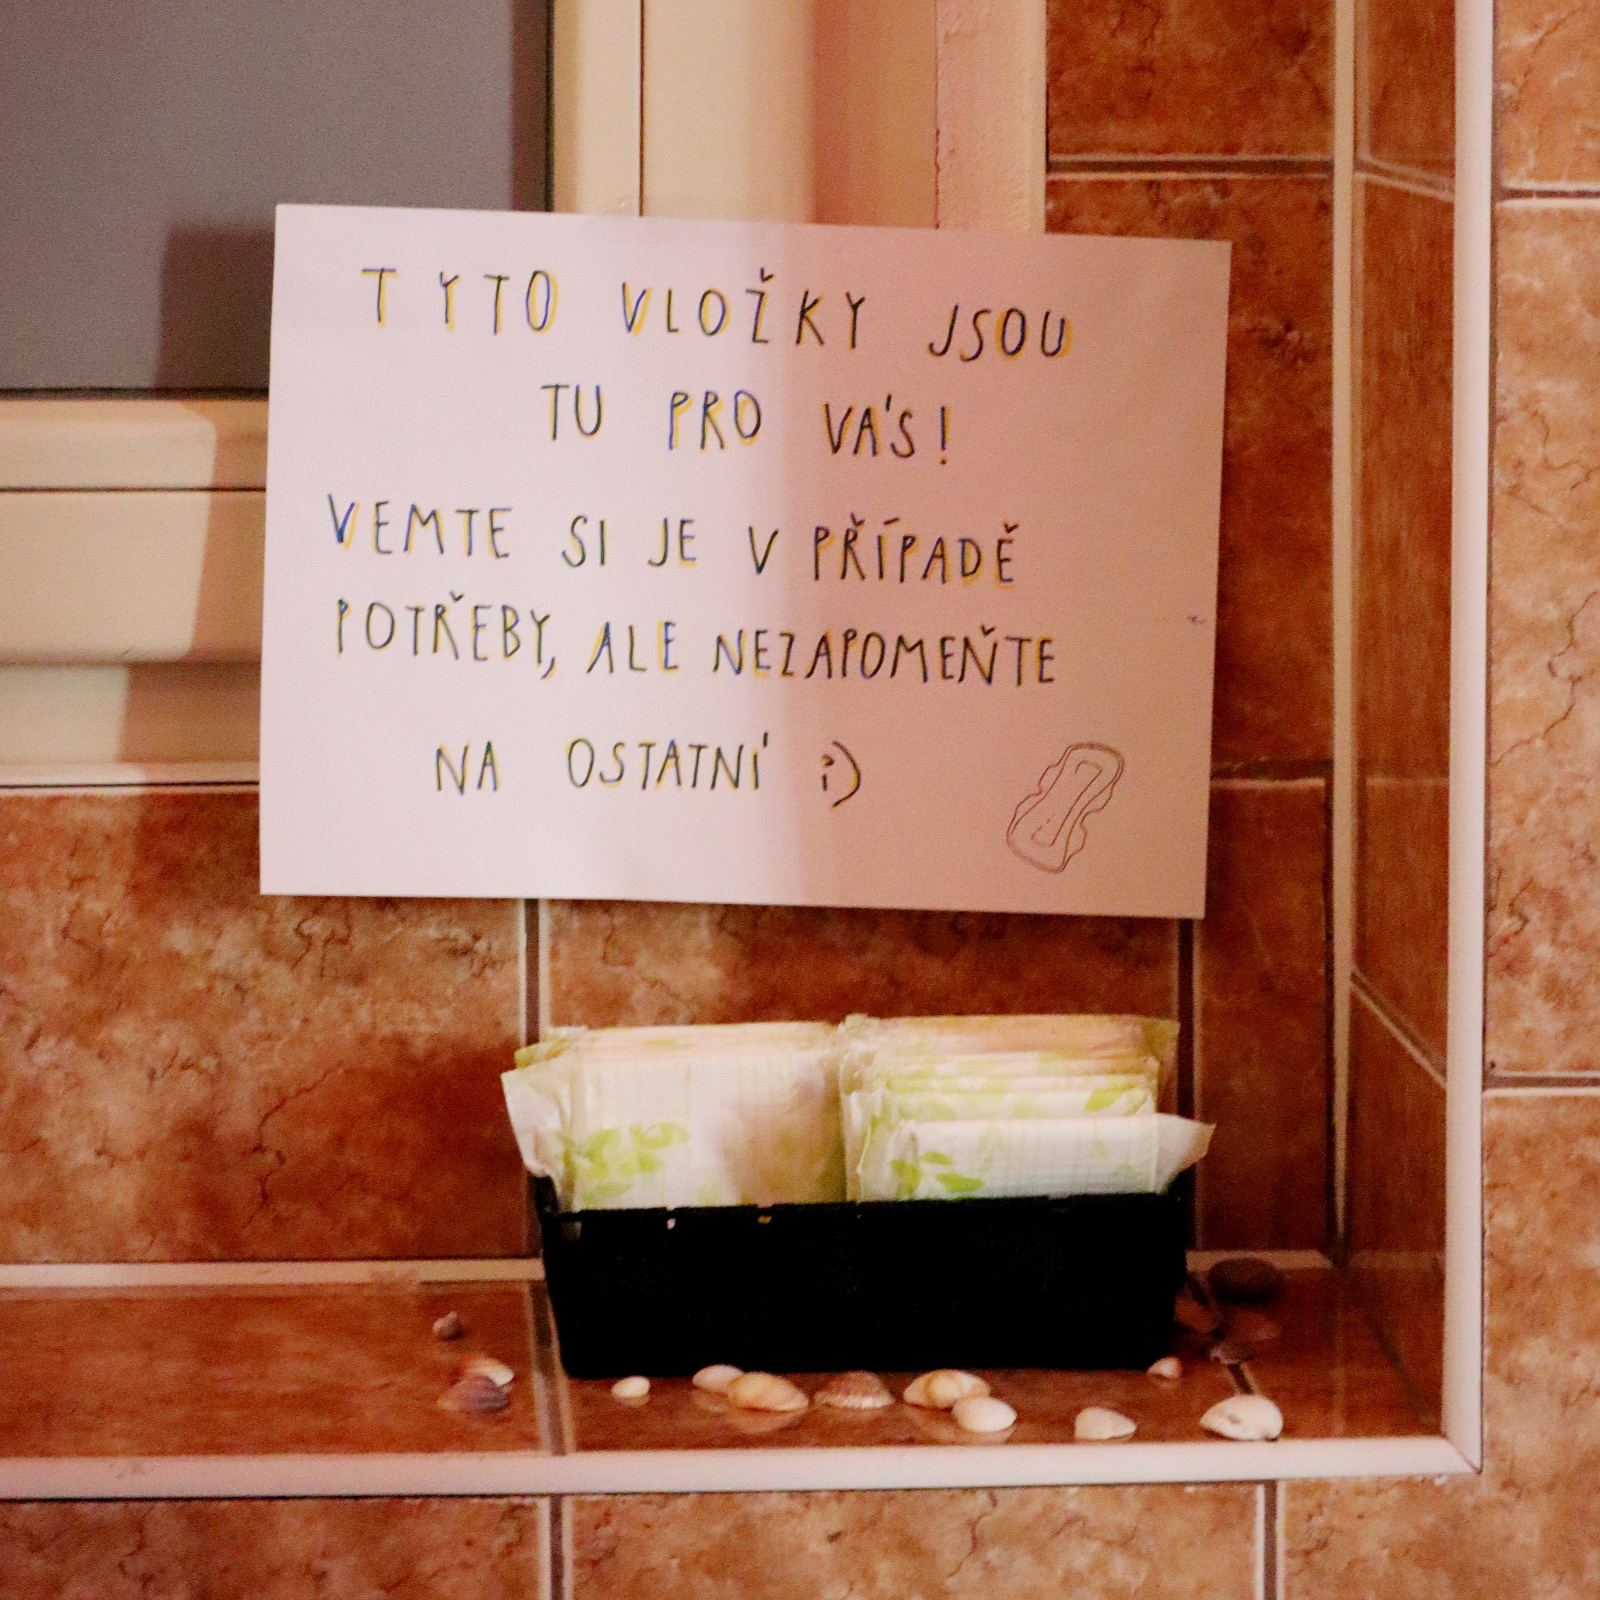 TYTO VLOŽKY JSOU
TU PRO VÁS!
VEMTE SI JE V PŘÍPADĚ
POTŘEBY, ALE NEZAPOMEŇTE
NA OSTATNÍ ;)